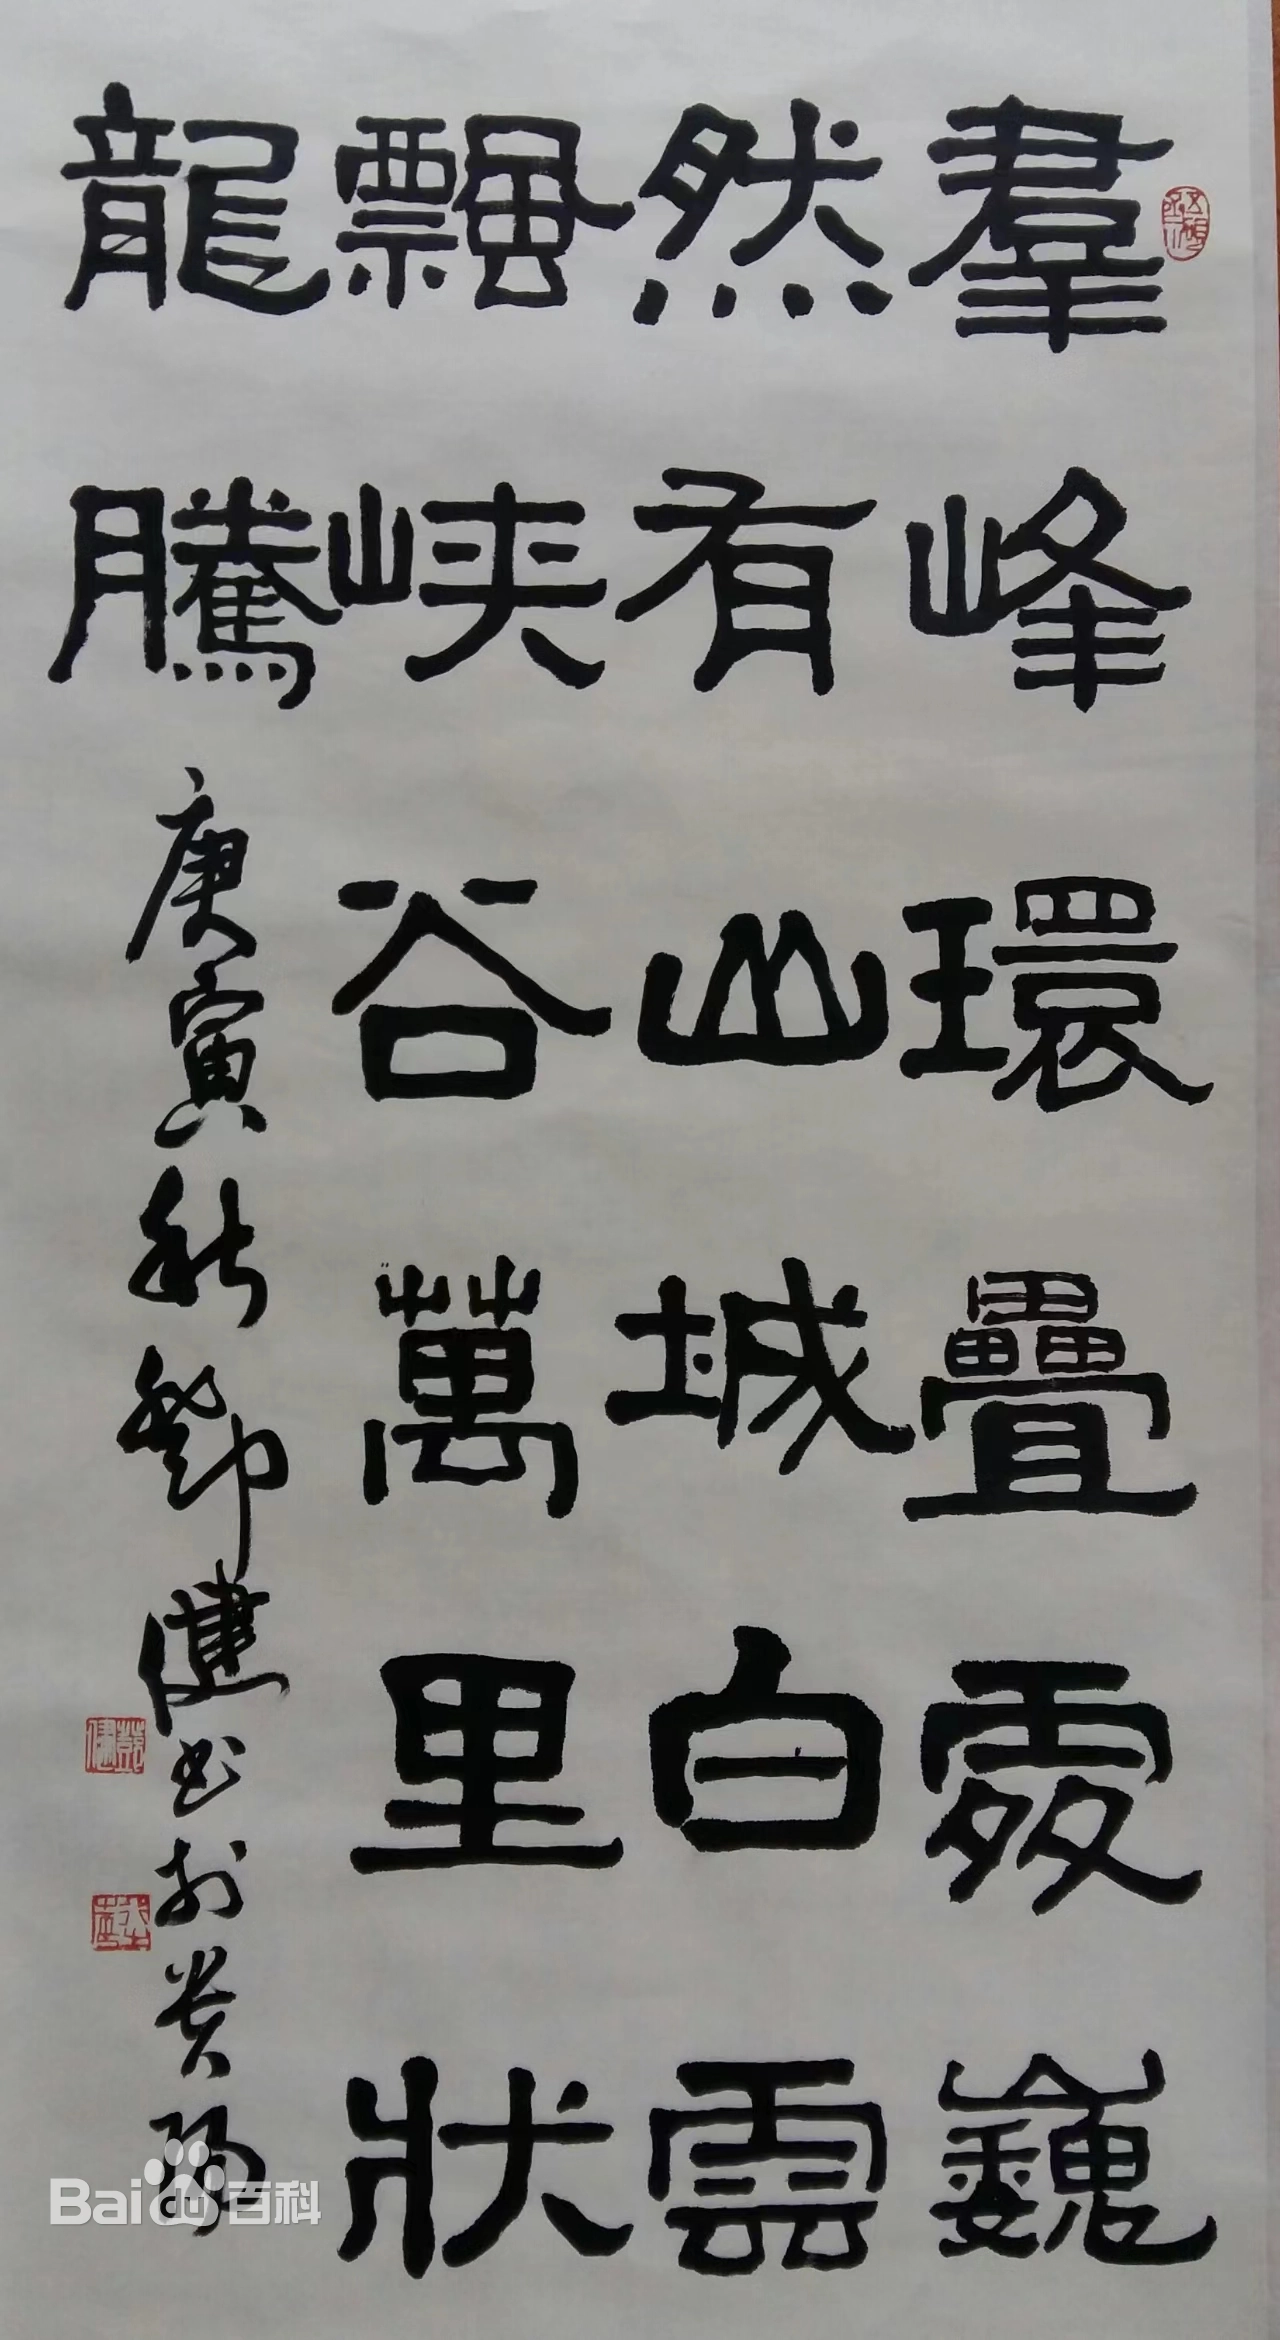 羣峰環疊處巍
然有山城白雲
飄峽谷萬里狀
龍騰
庚寅秋鄧健书於贵陽
Bai百科